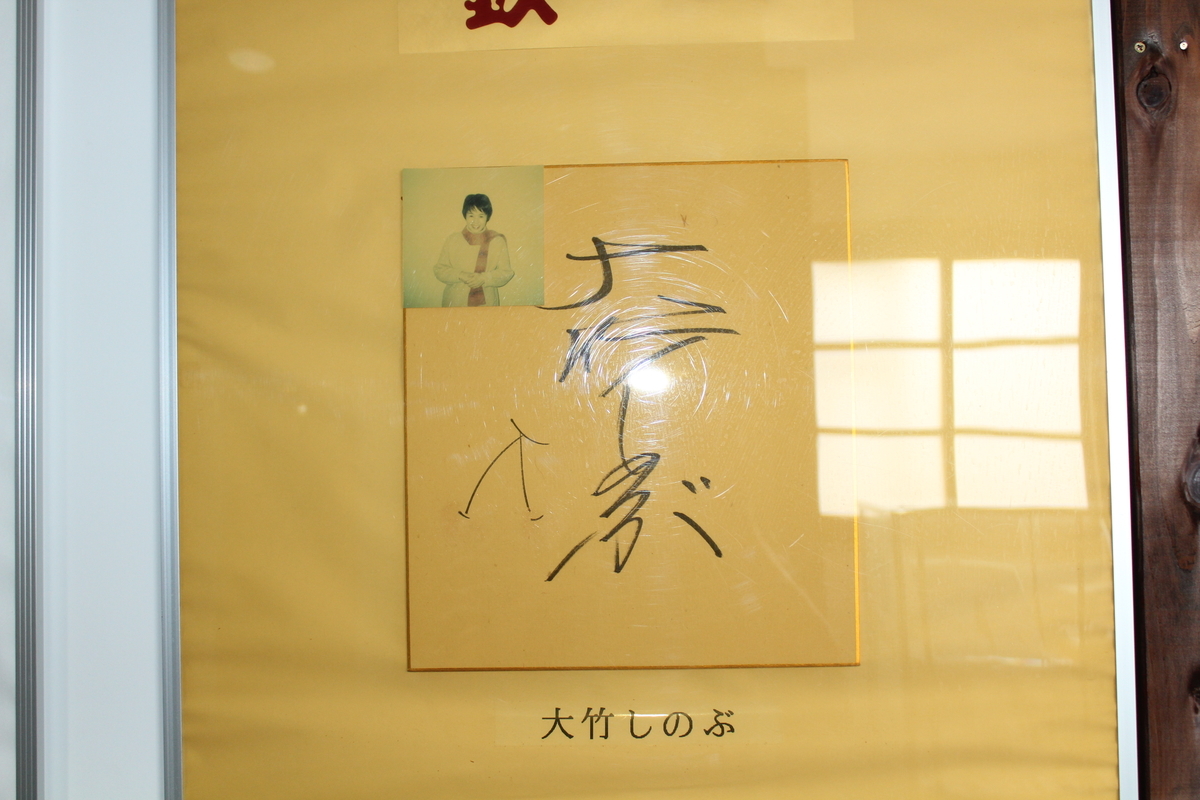 大竹しのぶ
大竹しのぶ